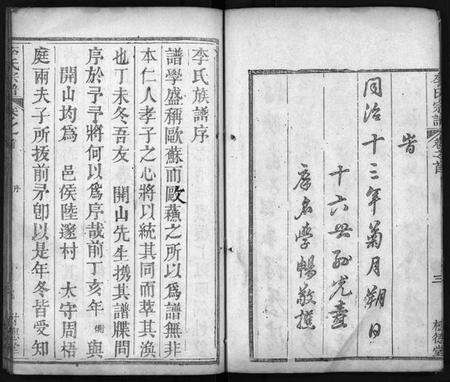 李氏宗譜 卷之首 三
皆
同治十三年菊月朔日
十六世孫光壽
庠名學暢敬撰
李氏族譜序
譜學盛稱歐蘇而歐蘇之所以爲譜無非
本仁人孝子之心將以統其同而萃其渙
也丁未冬吾友 開山先生携其譜牒問
序於予予將何以爲序哉前丁亥年 與
開山均爲 邑侯陸邃村 太守周梧
庭兩夫子所拔前矛卽以是年冬皆受知
李氏宗譜 卷之首